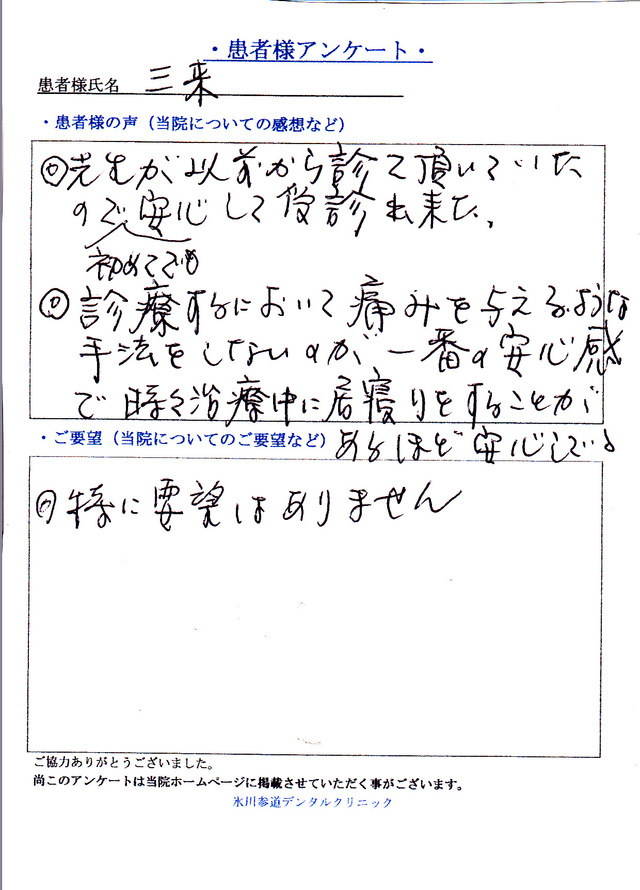 ・患者様アンケート・
患者様氏名 三来
・患者様の声（当院についての感想など）
◎先生が以前から診て頂いていた
ので安心して受診出来た。
初めてでも
◎診療するにおいて痛みを与えるような
手法をしないのが、一番の安心感
で時々治療中に居寝りをすることが
あるほど安心している
・ご要望（当院についてのご要望など）
◎特に要望はありません
ご協力ありがとうございました。
尚このアンケートは当院ホームページに掲載させていただく事がございます。
氷川参道デンタルクリニック